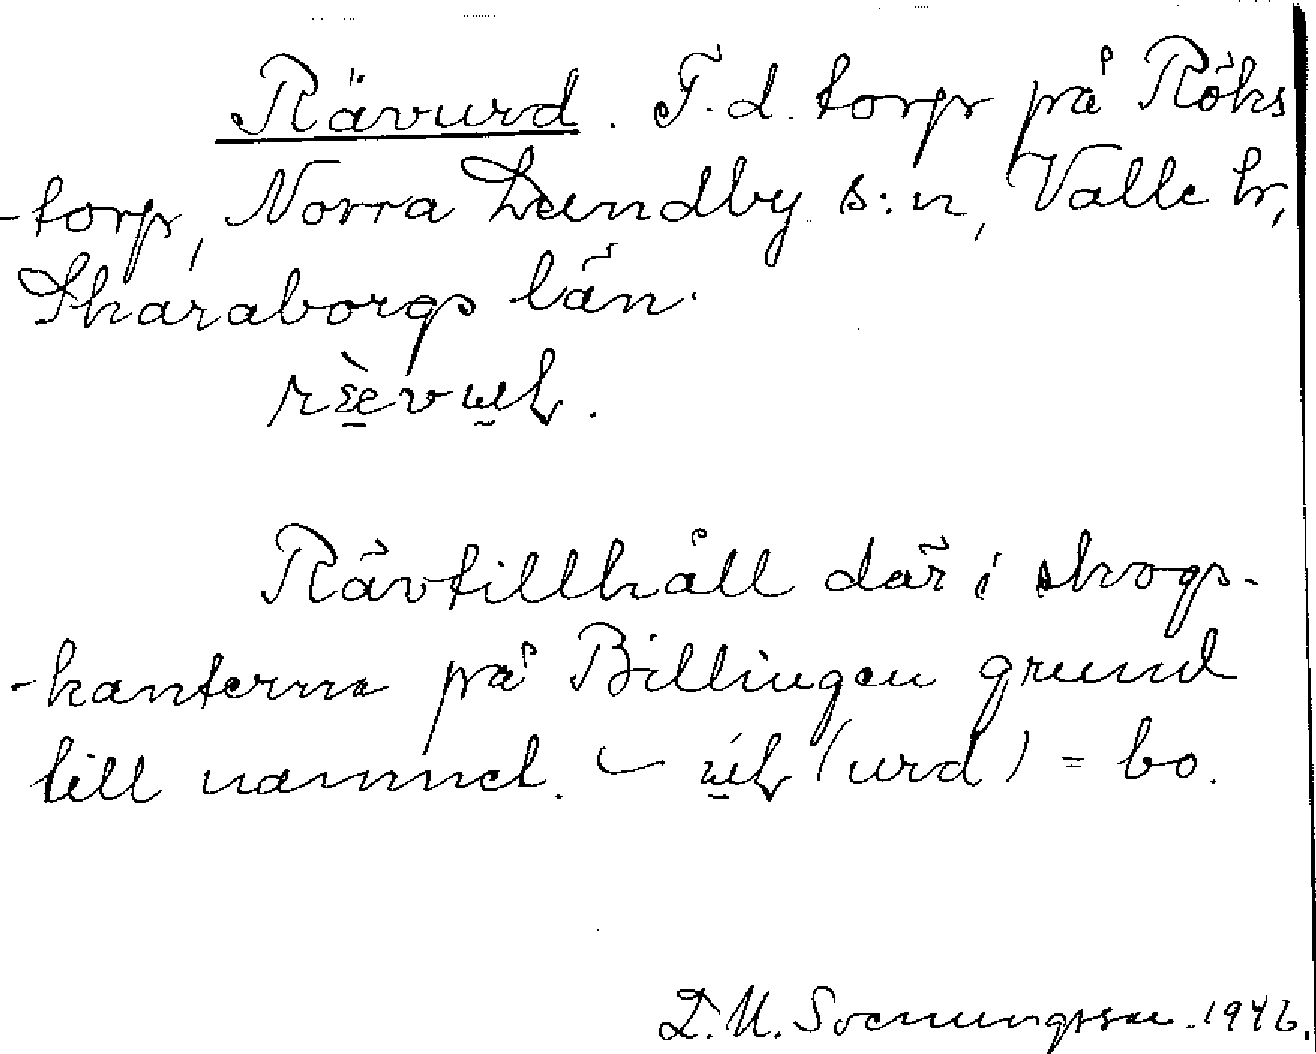 Rävurd. F.d. torp på Röks
-torp, Norra Lundby s:n, Valle hr,
Skaraborgs län.

Rävtillhåll där i skogs-
-kanterna på Billingen grund
till namnet. – (urd) = bo.
D.M. Svenungsson. 1946.